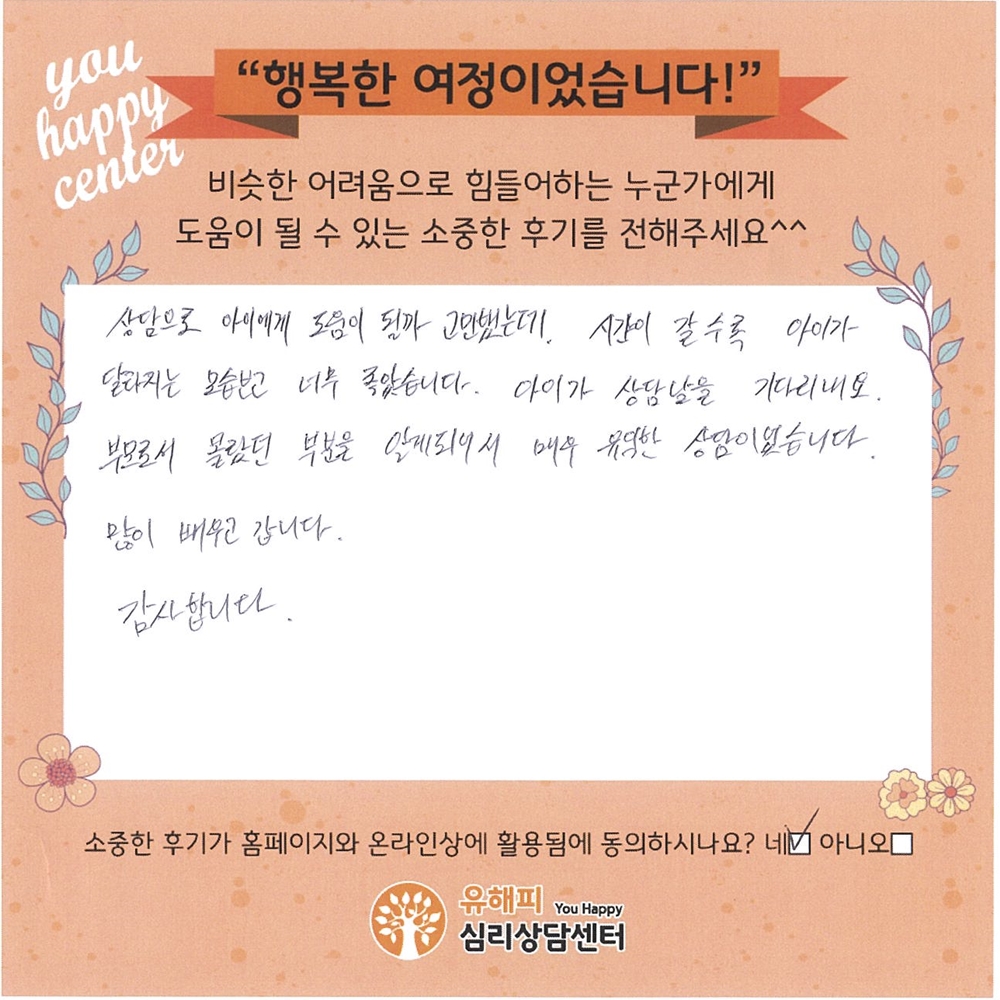 you
happy
center
“행복한 여정이었습니다!”
비슷한 어려움으로 힘들어하는 누군가에게
도움이 될 수 있는 소중한 후기를 전해주세요^^
상담으로 아이에게 도움이 될까 고민했는데. 시간이 갈수록 아이가
달라지는 모습보고 너무 좋았습니다. 아이가 상담날을 기다리네요.
부모로서 몰랐던 부분을 알게되어서 매우 유익한 상담이었습니다.
많이 배우고 갑니다.
감사합니다.
소중한 후기가 홈페이지와 온라인상에 활용됨에 동의하시나요? 네☑ 아니오☐
유해피 You Happy
심리상담센터